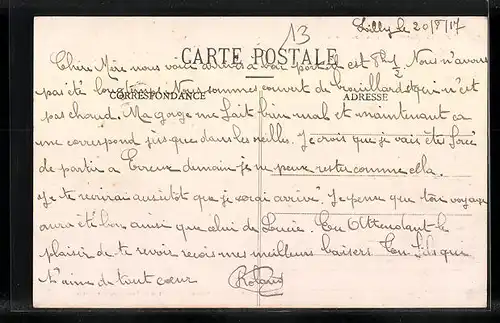 13
Lilly le 20/8/17
CARTE POSTALE
Chère Mère nous voici arrivés à bon port il est 8h 1/2 Nous n'avons
pas été longtemps. Nous sommes couvert de brouillard et qui n'est
CORRESPONDANCE
ADRESSE
pas chaud. Ma gorge me fait bien mal et maintenant ca
me correspond jusque dans les oreilles. Je crois que je vais être forcé
de partir a Evreux demain je ne peux rester comme cela.
Je te recrirai aussitôt que je serai arrivé. Je pense que ton voyage
aura été bon ainsi que celui de Lucie. En Attendant le
plaisir de te revoir reçois mes meilleurs baisers Ton fils qui
t'aime de tout cœur
Roland